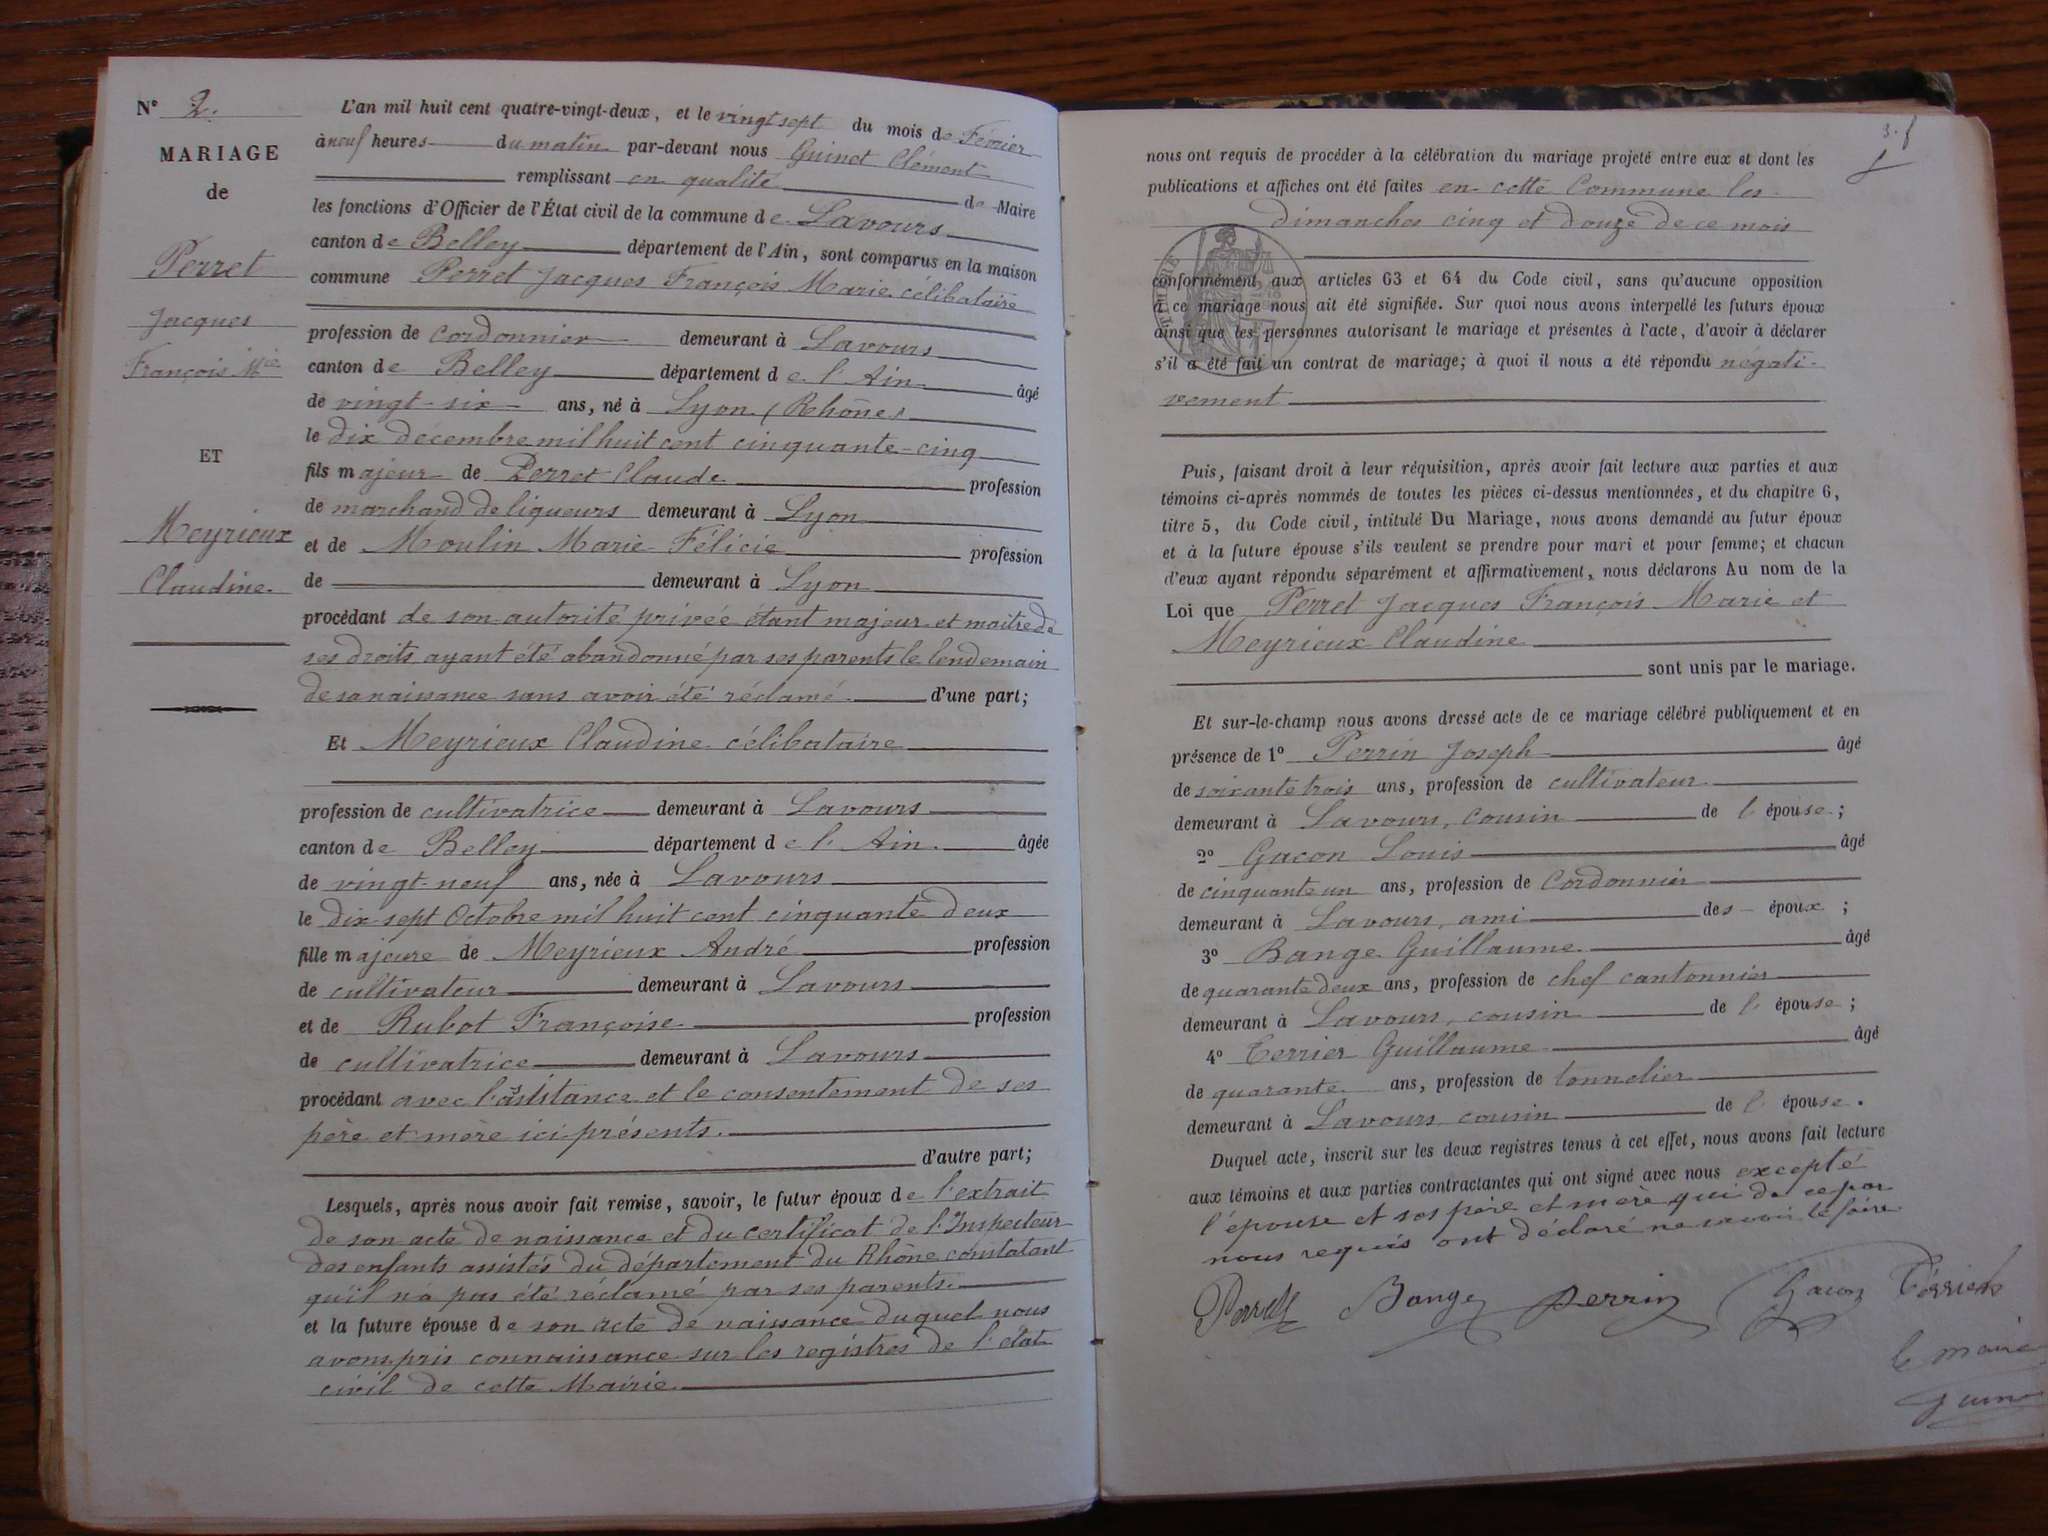 N° 2.
MARIAGE
de
Perret
Jacques
François Mie
ET
Meyrieux
Claudine.
L'an mil huit cent quatre-vingt-deux, et le vingt sept du mois de Février
à neuf heures du matin par-devant nous Guinet Clément
remplissant en qualité de Maire
les fonctions d'Officier de l'État civil de la commune de Lavours
canton de Belley département de l'Ain, sont comparus en la maison
commune Perret Jacques François Marie célibataire
profession de cordonnier demeurant à Lavours
canton de Belley département de l'Ain âgé
de vingt-six ans, né à Lyon (Rhône)
le dix décembre mil huit cent cinquante-cinq
fils majeur de Perret Claude profession
de marchand de liqueurs demeurant à Lyon
et de Moulin Marie Félicie profession
de demeurant à Lyon
procédant de son autorité privée étant majeur et maitre de
ses droits ayant été abandonné par ses parents le lendemain
de sa naissance sans avoir été réclamé. d'une part;
Et Meyrieux Claudine célibataire
profession de cultivatrice demeurant à Lavours
canton de Belley département de l'Ain. âgée
de vingt-neuf ans, née à Lavours
le dix-sept Octobre mil huit cent cinquante deux
fille majeure de Meyrieux André profession
de cultivateur demeurant à Lavours
et de Rubot Françoise profession
de cultivatrice demeurant à Lavours
procédant avec l'assistance et le consentement de ses
père et mère ici présents.
d'autre part;
Lesquels, après nous avoir fait remise, savoir, le futur époux de l'extrait
de son acte de naissance et du certificat de l'Inspecteur
des enfants assistés du département du Rhône constatant
qu'il n'a pas été réclamé par ses parents.
et la future épouse de son acte de naissance duquel nous
avons pris connaissance sur les registres de l'état
civil de cette Mairie.
3. f
nous ont requis de procéder à la célébration du mariage projeté entre eux et dont les
publications et affiches ont été faites en cette Commune les
dimanches cinq et douze de ce mois
TIMBRE
conformément aux articles 63 et 64 du Code civil, sans qu'aucune opposition
à ce mariage nous ait été signifiée. Sur quoi nous avons interpellé les futurs époux
ainsi que les personnes autorisant le mariage et présentes à l'acte, d'avoir à déclarer
s'il a été fait un contrat de mariage; à quoi il nous a été répondu négati-
vement
Puis, faisant droit à leur réquisition, après avoir fait lecture aux parties et aux
témoins ci-après nommés de toutes les pièces ci-dessus mentionnées, et du chapitre 6,
titre 5, du Code civil, intitulé Du Mariage, nous avons demandé au futur époux
et à la future épouse s'ils veulent se prendre pour mari et pour femme; et chacun
d'eux ayant répondu séparément et affirmativement, nous déclarons Au nom de la
Loi que Perret Jacques François Marie et
Meyrieux Claudine
sont unis par le mariage.
Et sur-le-champ nous avons dressé acte de ce mariage célébré publiquement et en
présence de 1° Perrin Joseph âgé
de soixante trois ans, profession de cultivateur
demeurant à Lavours, cousin de l'épouse;
2° Gacon Louis âgé
de cinquante un ans, profession de Cordonnier
demeurant à Lavours, ami des époux;
3° Bange Guillaume âgé
de quarante deux ans, profession de chef cantonnier
demeurant à Lavours, cousin de l'épouse;
4° Terrier Guillaume âgé
de quarante ans, profession de tonnelier
demeurant à Lavours cousin de l'épouse.
Duquel acte, inscrit sur les deux registres tenus à cet effet, nous avons fait lecture
aux témoins et aux parties contractantes qui ont signé avec nous excepté
l'épouse et ses père et mère qui de ce par
nous requis ont déclaré ne savoir le faire.
Perret Bange Perrin Gacon Térrier
le maire
Guinet